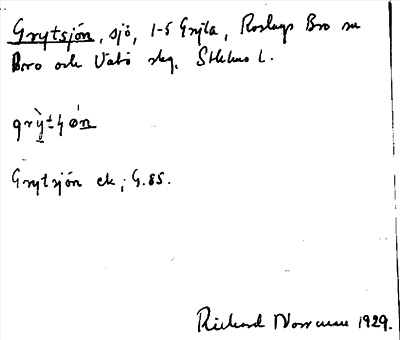 Grytsjön, sjö, 1-5 Gryta, Roslags Bro sn
Bro och Vätö skg. Sthlms L.
grỳt-ʃøn
Grytsjön ek, G.85.
Richard 1929.